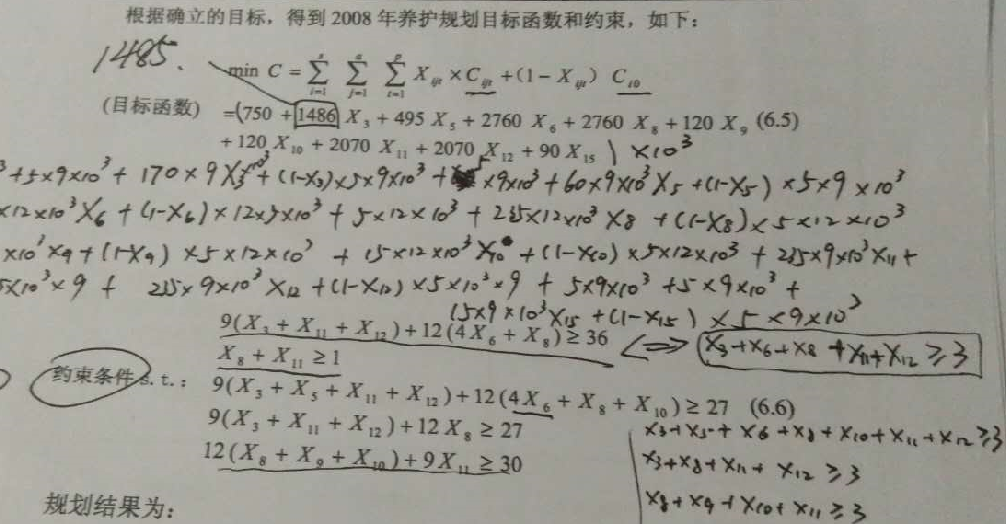 根据确立的目标，得到 2008 年养护规划目标函数和约束，如下：
1485.
min C = Σ_{i=1} Σ_{j=1} Σ_{t=1} X_{ijt} × C_{ijt} + (1 − X_{ijt}) C_{t0}
(目标函数) =(750 + 1486 X₃ + 495 X₅ + 2760 X₆ + 2760 X₈ + 120 X₉ (6.5)
+ 120 X₁₀ + 2070 X₁₁ + 2070 X₁₂ + 90 X₁₅ ) ×10³
+5×9×10³ + 170×9X₃×10³ + (1-X₃)×5×9×10³ + ×9×10³ + 60×9×10³X₅ + (1-X₅) ×5×9×10³
×12×10³X₆ + (1-X₆)×12×5×10³ + 5×12×10³ + 235×12×10³X₈ + (1-X₈)×5×12×10³
×10³X₉ + (1-X₉) ×5×12×10³ + 15×12×10³X₁₀ + (1-X₁₀)×5×12×10³ + 235×9×10³X₁₁ +
5×10³×9 + 235×9×10³X₁₂ + (1-X₁₂)×5×10³×9 + 5×9×10³ + 5×9×10³ +
15×9×10³X₁₅ + (1-X₁₅) ×5×9×10³
9(X₃ + X₁₁ + X₁₂) + 12(4X₆ + X₈) ≥ 36 ⇔ X₃+X₆+X₈+X₁₁+X₁₂≥3
X₈ + X₁₁ ≥ 1
约束条件 s.t.： 9(X₃ + X₅ + X₁₁ + X₁₂) + 12(4X₆ + X₈ + X₁₀) ≥ 27 (6.6)
9(X₃ + X₁₁ + X₁₂) + 12X₈ ≥ 27
X₃+X₅+X₆+X₈+X₁₀+X₁₁+X₁₂≥3
12(X₈ + X₉ + X₁₀) + 9X₁₁ ≥ 30
X₃+X₈+X₁₁+X₁₂≥3
X₈+X₉+X₁₀+X₁₁≥3
规划结果为：